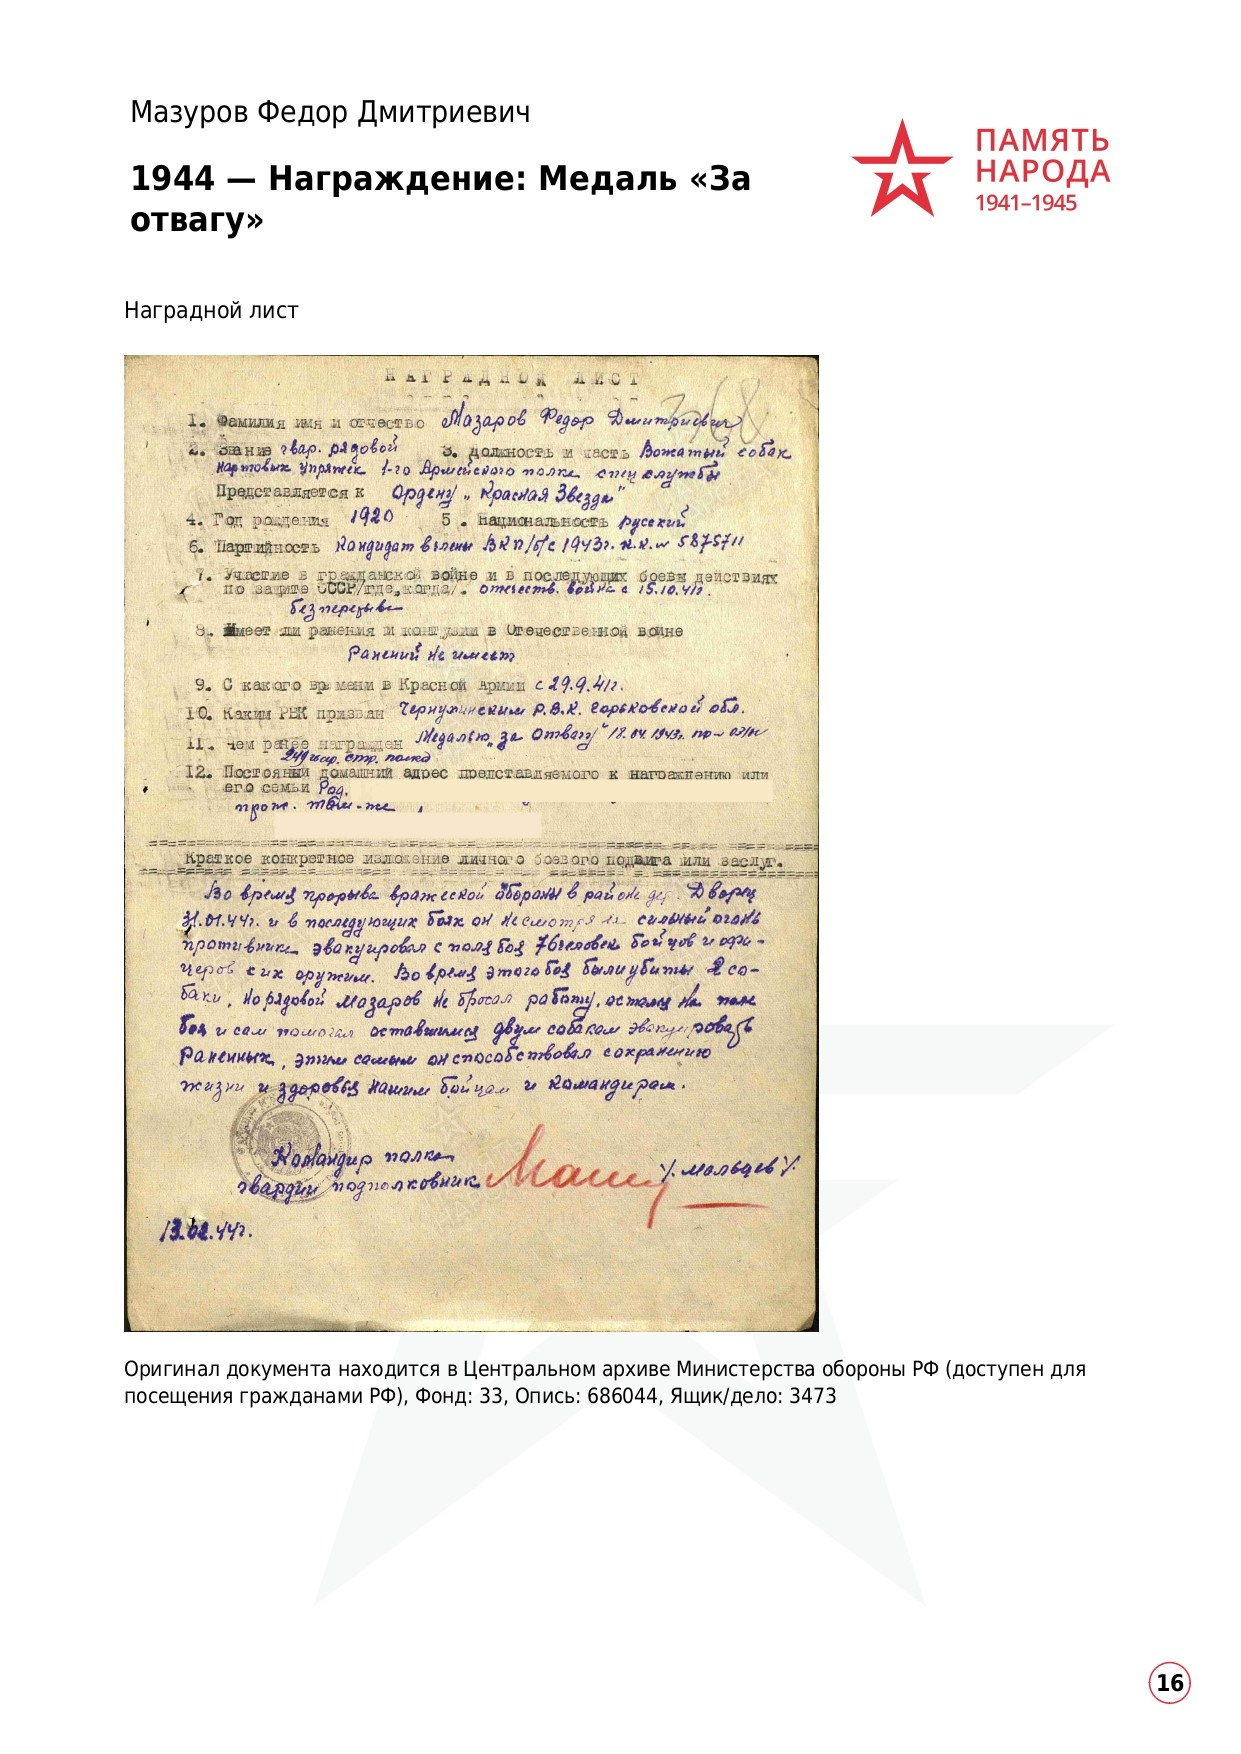 Мазуров Федор Дмитриевич
1944 — Награждение: Медаль «За
отвагу»
ПАМЯТЬ
НАРОДА
1941–1945
Наградной лист
НАГРАДНОЙ ЛИСТ
368
1. Фамилия имя и отчество Мазаров Федор Дмитриевич
2. Звание гвар. рядовой 3. должность и часть Вожатый собак
нартовых упряжек 1-го Армейского полка спец службы
Представляется к Ордену „Красная Звезда"
4. Год рождения 1920 5. национальность русский
6. Партийность Кандидат в члены ВКП/б/с 1943г. к.к. № 5875711
7. Участие в гражданской войне и в последующих боевы действиях
по защите СССР/где,когда/. отечеств. война с 15.10.41г.
без перерыва
8. Имеет ли ранения и контузии в Отечественной войне
Ранений не имеет
9. С какого времени в Красной Армии с 29.9.41г.
10. Каким РВК призван Р.В.К. Горьковской обл.
11. чем ранее награжден Медалью „за Отвагу" 18.04.1943г.
249 гвар. стр. полка
12. Постояный домашний адрес представляемого к награждению или
его семьи Род.
прож. там-же
Краткое конкретное изложение личного боевого подвига или заслуг.
Во время прорыва вражеской обороны в районе дер. Дворец
31.01.44г. и в последующих боях он несмотря на сильный огонь
противника эвакуировал с поля боя 76 человек бойцов и офи-
церов с их оружим. Во время этого боя были убиты 2 со-
баки, но рядовой Мазаров не бросал работу, остался на поле
боя и сам помогал оставшимся двум собакам эвакуировать
раненных, этим самым он способствовал сохранению
жизни и здоровья нашим бойцам и командирам.
Командир полка
гвардии подполковник /Мальцев/.
13.02.44г.
Оригинал документа находится в Центральном архиве Министерства обороны РФ (доступен для
посещения гражданами РФ), Фонд: 33, Опись: 686044, Ящик/дело: 3473
16